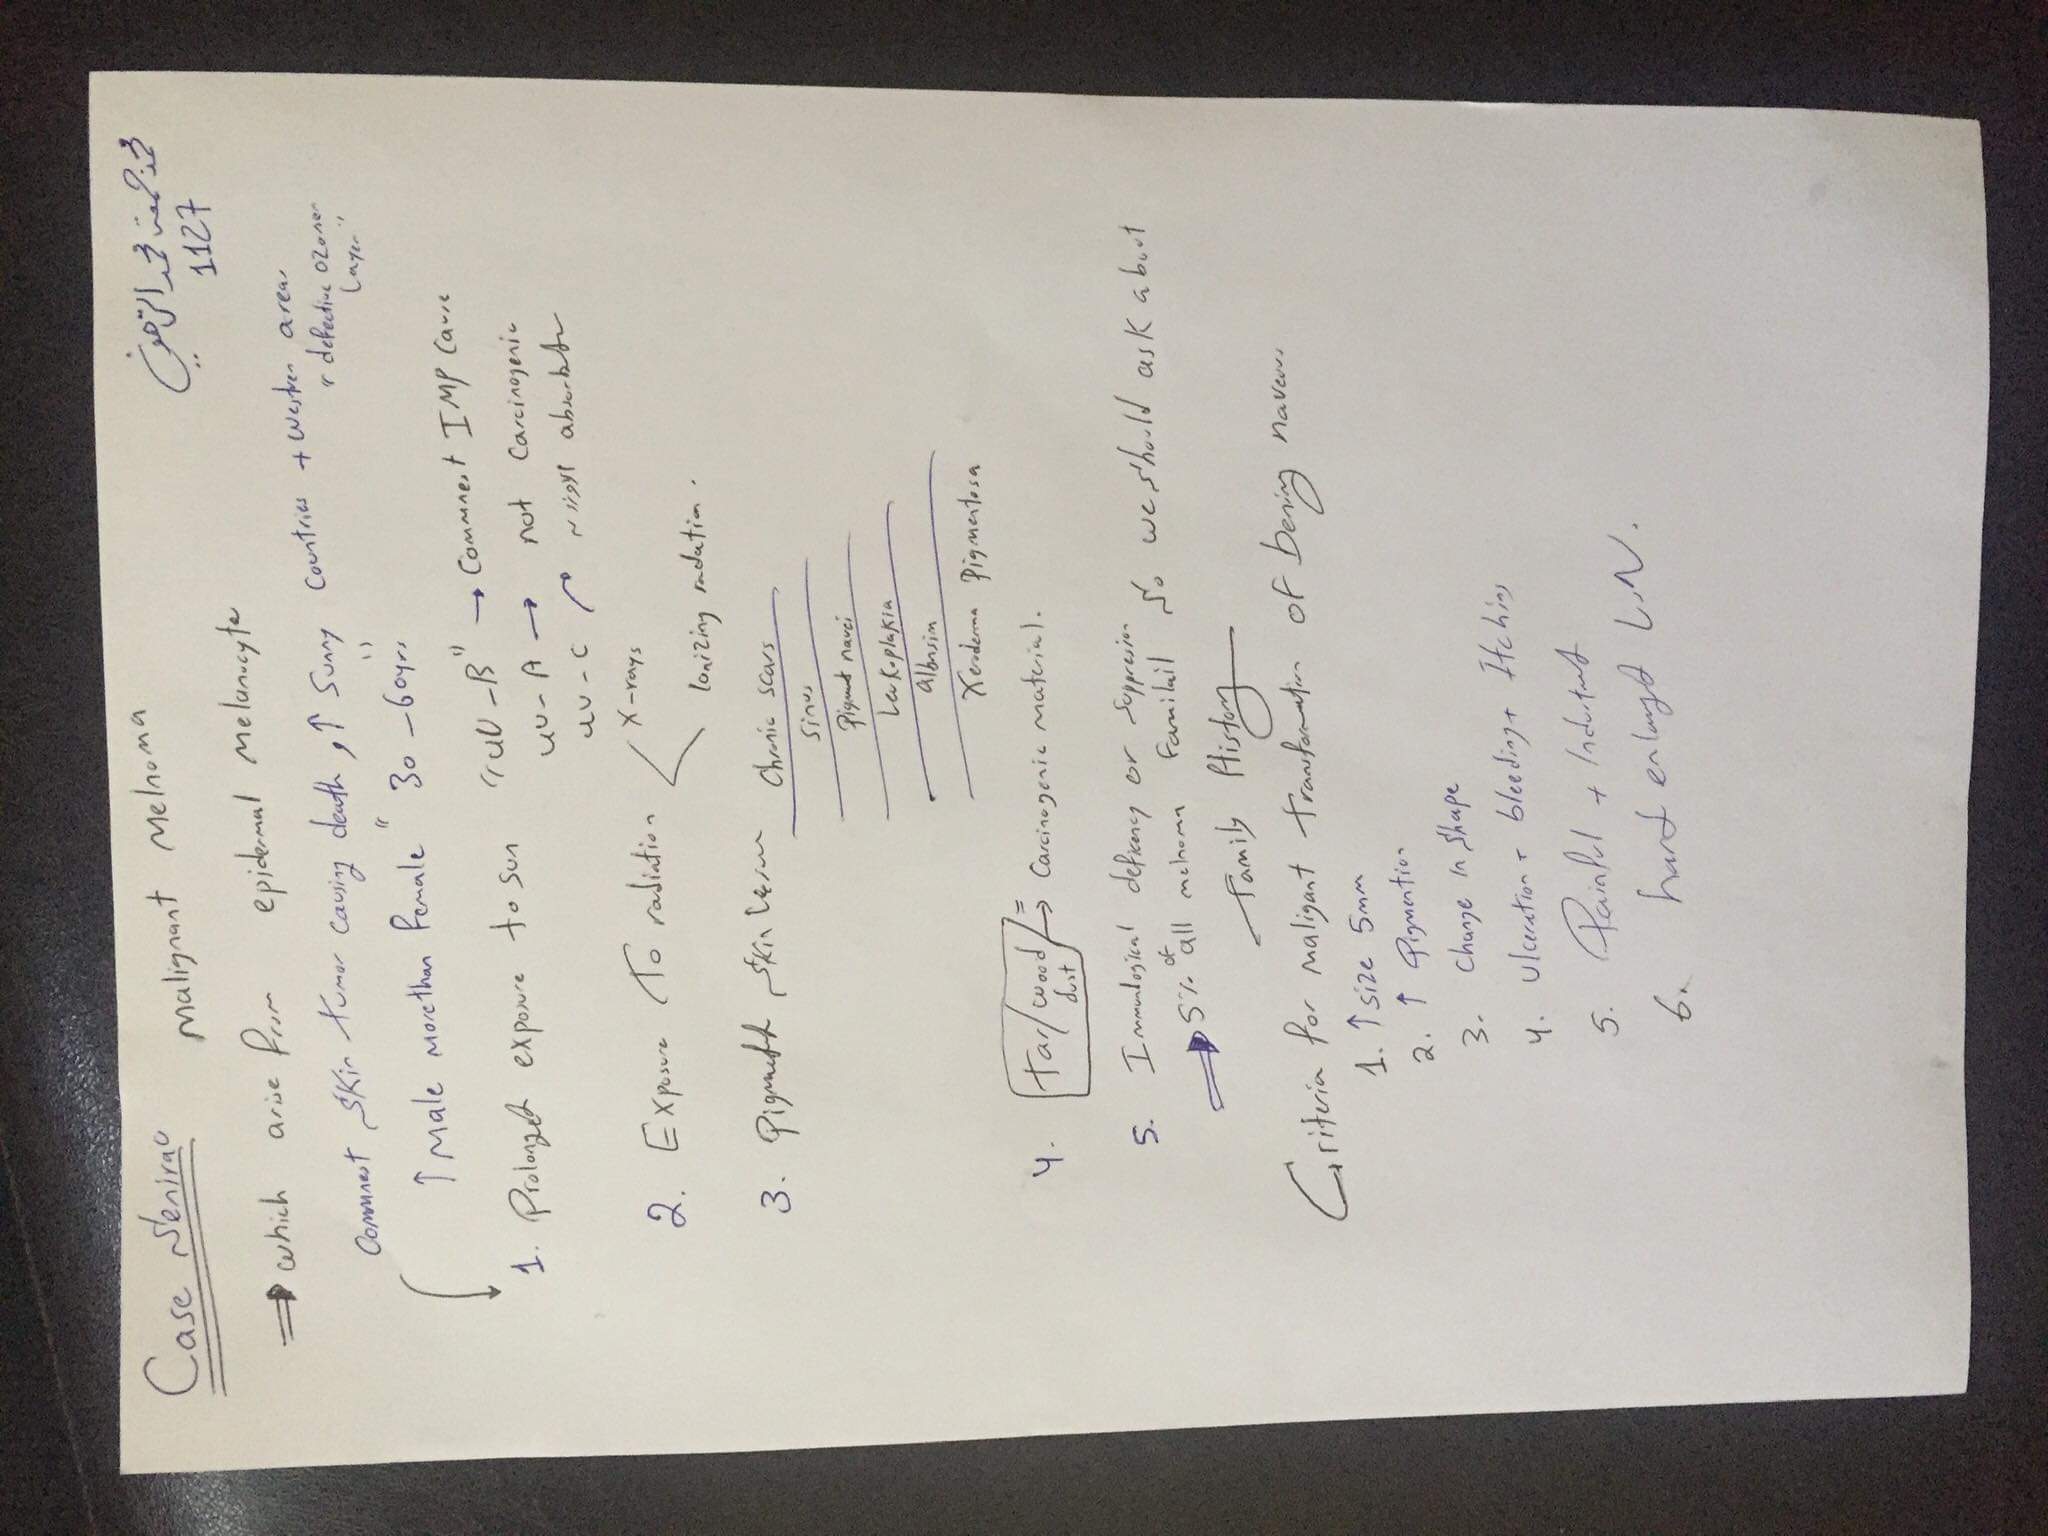 Case Senirao
1127
malignant Melnoma
which arise from epidermal melanocyte
Commnest Skin tumor causing death, ↑ Sunny Countries + westren area
"defective ozone Layer"
↑ Male more than female " 30 - 60yrs "
1. Prolonged exposure to sun "UV-B" → Commnest IMP Cause
UV-A → not Carcinogenic
UV-C → absorbed
2. Exposure To radiation
X-rays
Ionizing radation.
3. Pigmented Skin
Chronic scars
Sinus
Pigment navei
Leukoplakia
albnism
Xeroderma Pigmentosa
4. tar/wood dust → Carcinogenic material.
5. Immunological deficency or Suppression
5% of all melnoma Familail So we should ask about
Family History
Criteria for maligant transformation of bening naveus
1. ↑ size 5mm
2. ↑ Pigmention
3. Change In Shape
4. Ulceration + bleeding + Itching
5. Painful + Indurtued
6. hard enlarged L.N.